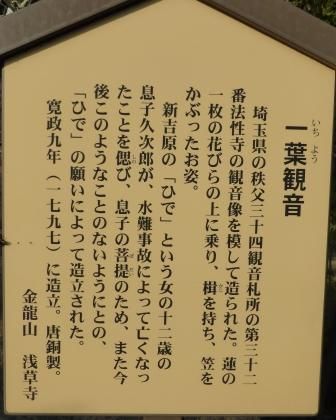 一葉観音
いちよう
埼玉県の秩父三十四観音札所の第三十二
番法性寺の観音像を模して造られた。蓮の
一枚の花びらの上に乗り、楫を持ち、笠を
かじ
かぶったお姿。
新吉原の「ひで」という女の十二歳の
息子久次郎が、水難事故によって亡くなっ
たことを偲び、息子の菩提のため、また今
しの
ぼだい
後このようなことのないようにとの、
「ひで」の願いによって造立された。
寛政九年（一七九七）に造立。唐銅製。
金龍山　浅草寺